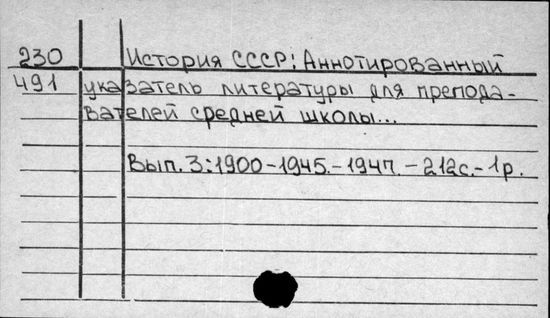 230 История СССР: Аннотированный
491 указатель литературы для препода-
вателей средней школы...
Вып. 3: 1900-1945.-1947.-212с.-1р.